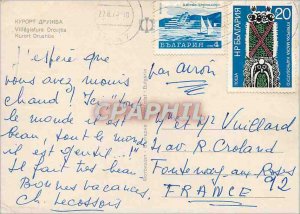 КУРОРТ ДРУЖБА
Villégiature Droujba
Kurort Drushba
БЪЛГАРИЯ
поща 4
20
J'espère que
vous avez moins
chaud ! Ici tout
le monde est
beau, tout le monde
il est gentil...!
Il fait très beau.
Bonnes vacances.
Ch. Lecossois
par avion
Mr et Me Vuillard
av. R. Croland
Fontenay aux Roses
92
FRANCE
CPARAPHIL